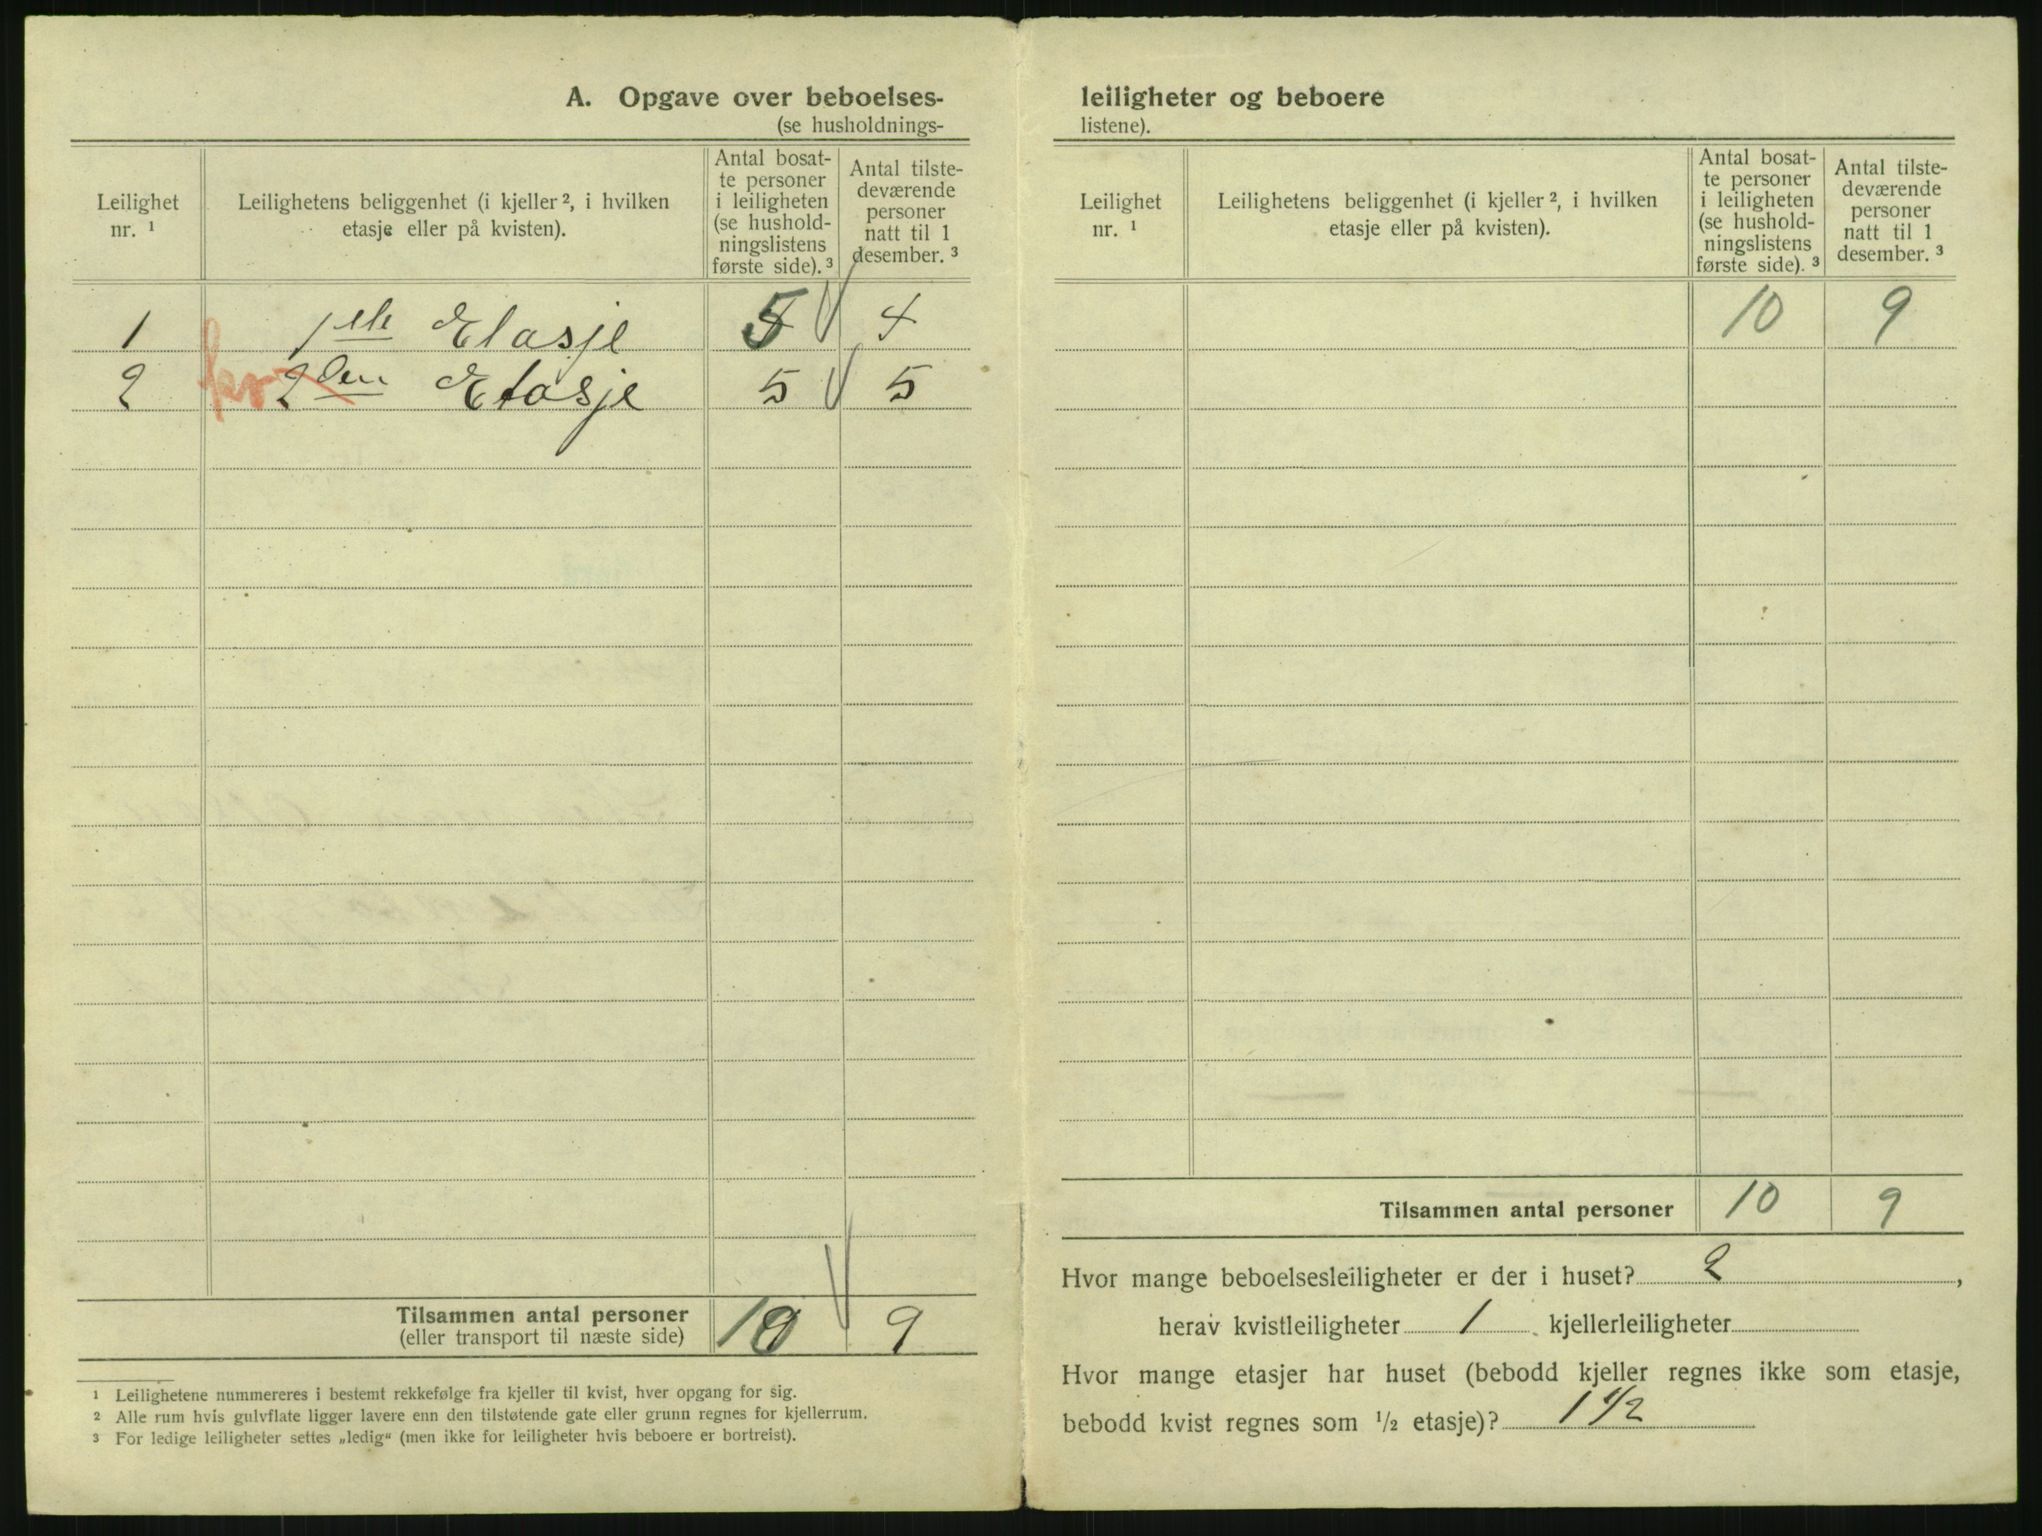 A. Opgave over beboelses-
(se husholdnings-
Leilighet nr. ¹
Leilighetens beliggenhet (i kjeller ², i hvilken etasje eller på kvisten).
Antal bosat-
te personer
i leiligheten
(se hushold-
ningslistens
første side). ³
Antal tilste-
deværende
personer
natt til 1
desember. ³
1 1ste Etasje 5 4
2 kv 2den Etasje 5 5
Tilsammen antal personer
(eller transport til næste side) 10 9
¹ Leilighetene nummereres i bestemt rekkefølge fra kjeller til kvist, hver opgang for sig.
² Alle rum hvis gulvflate ligger lavere enn den tilstøtende gate eller grunn regnes for kjellerrum.
³ For ledige leiligheter settes „ledig“ (men ikke for leiligheter hvis beboere er bortreist).
leiligheter og beboere
listene).
Leilighet nr. ¹
Leilighetens beliggenhet (i kjeller ², i hvilken etasje eller på kvisten).
Antal bosat-
te personer
i leiligheten
(se hushold-
ningslistens
første side). ³
Antal tilste-
deværende
personer
natt til 1
desember. ³
10 9
Tilsammen antal personer 10 9
Hvor mange beboelsesleiligheter er der i huset? 2,
herav kvistleiligheter 1 kjellerleiligheter
Hvor mange etasjer har huset (bebodd kjeller regnes ikke som etasje,
bebodd kvist regnes som ½ etasje)? 1 ½